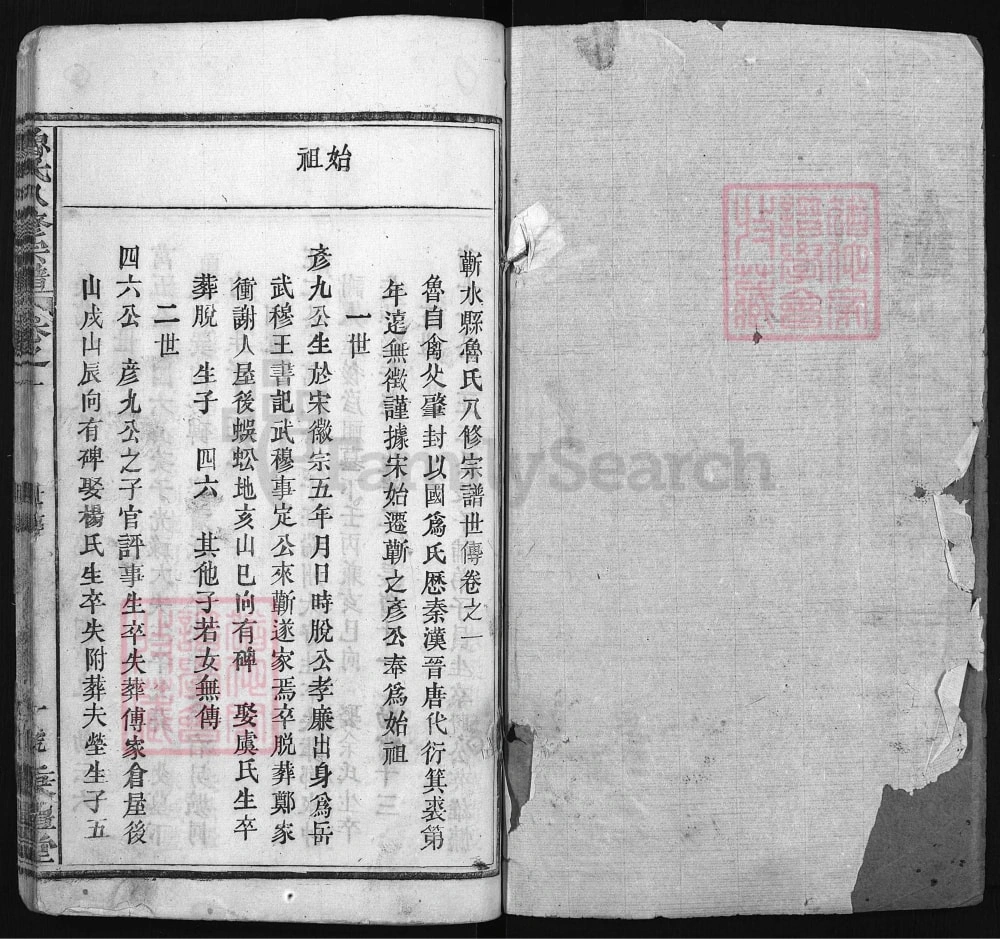 始祖
蘄水縣魯氏八修宗譜世傳卷之一
魯自禽父肇封以國爲氏歷秦漢晉唐代衍箕裘第
年遠無徵謹據宋始遷蘄之彥公奉爲始祖
一世
彥九公生於宋徽宗五年月日時脫公孝廉出身爲岳
武穆王書記武穆事定公來蘄遂家焉卒脫葬鄭家
衝謝人屋後蜈蚣地亥山巳向有碑 娶虞氏生卒
葬脫 生子 四六 其他子若女無傳
二世
四六公 彥九公之子官評事生卒失葬傅家倉屋後
山戌山辰向有碑娶楊氏生卒失附葬夫塋生子五
魯氏八修宗譜 卷之一
世傳
一
FamilySearch